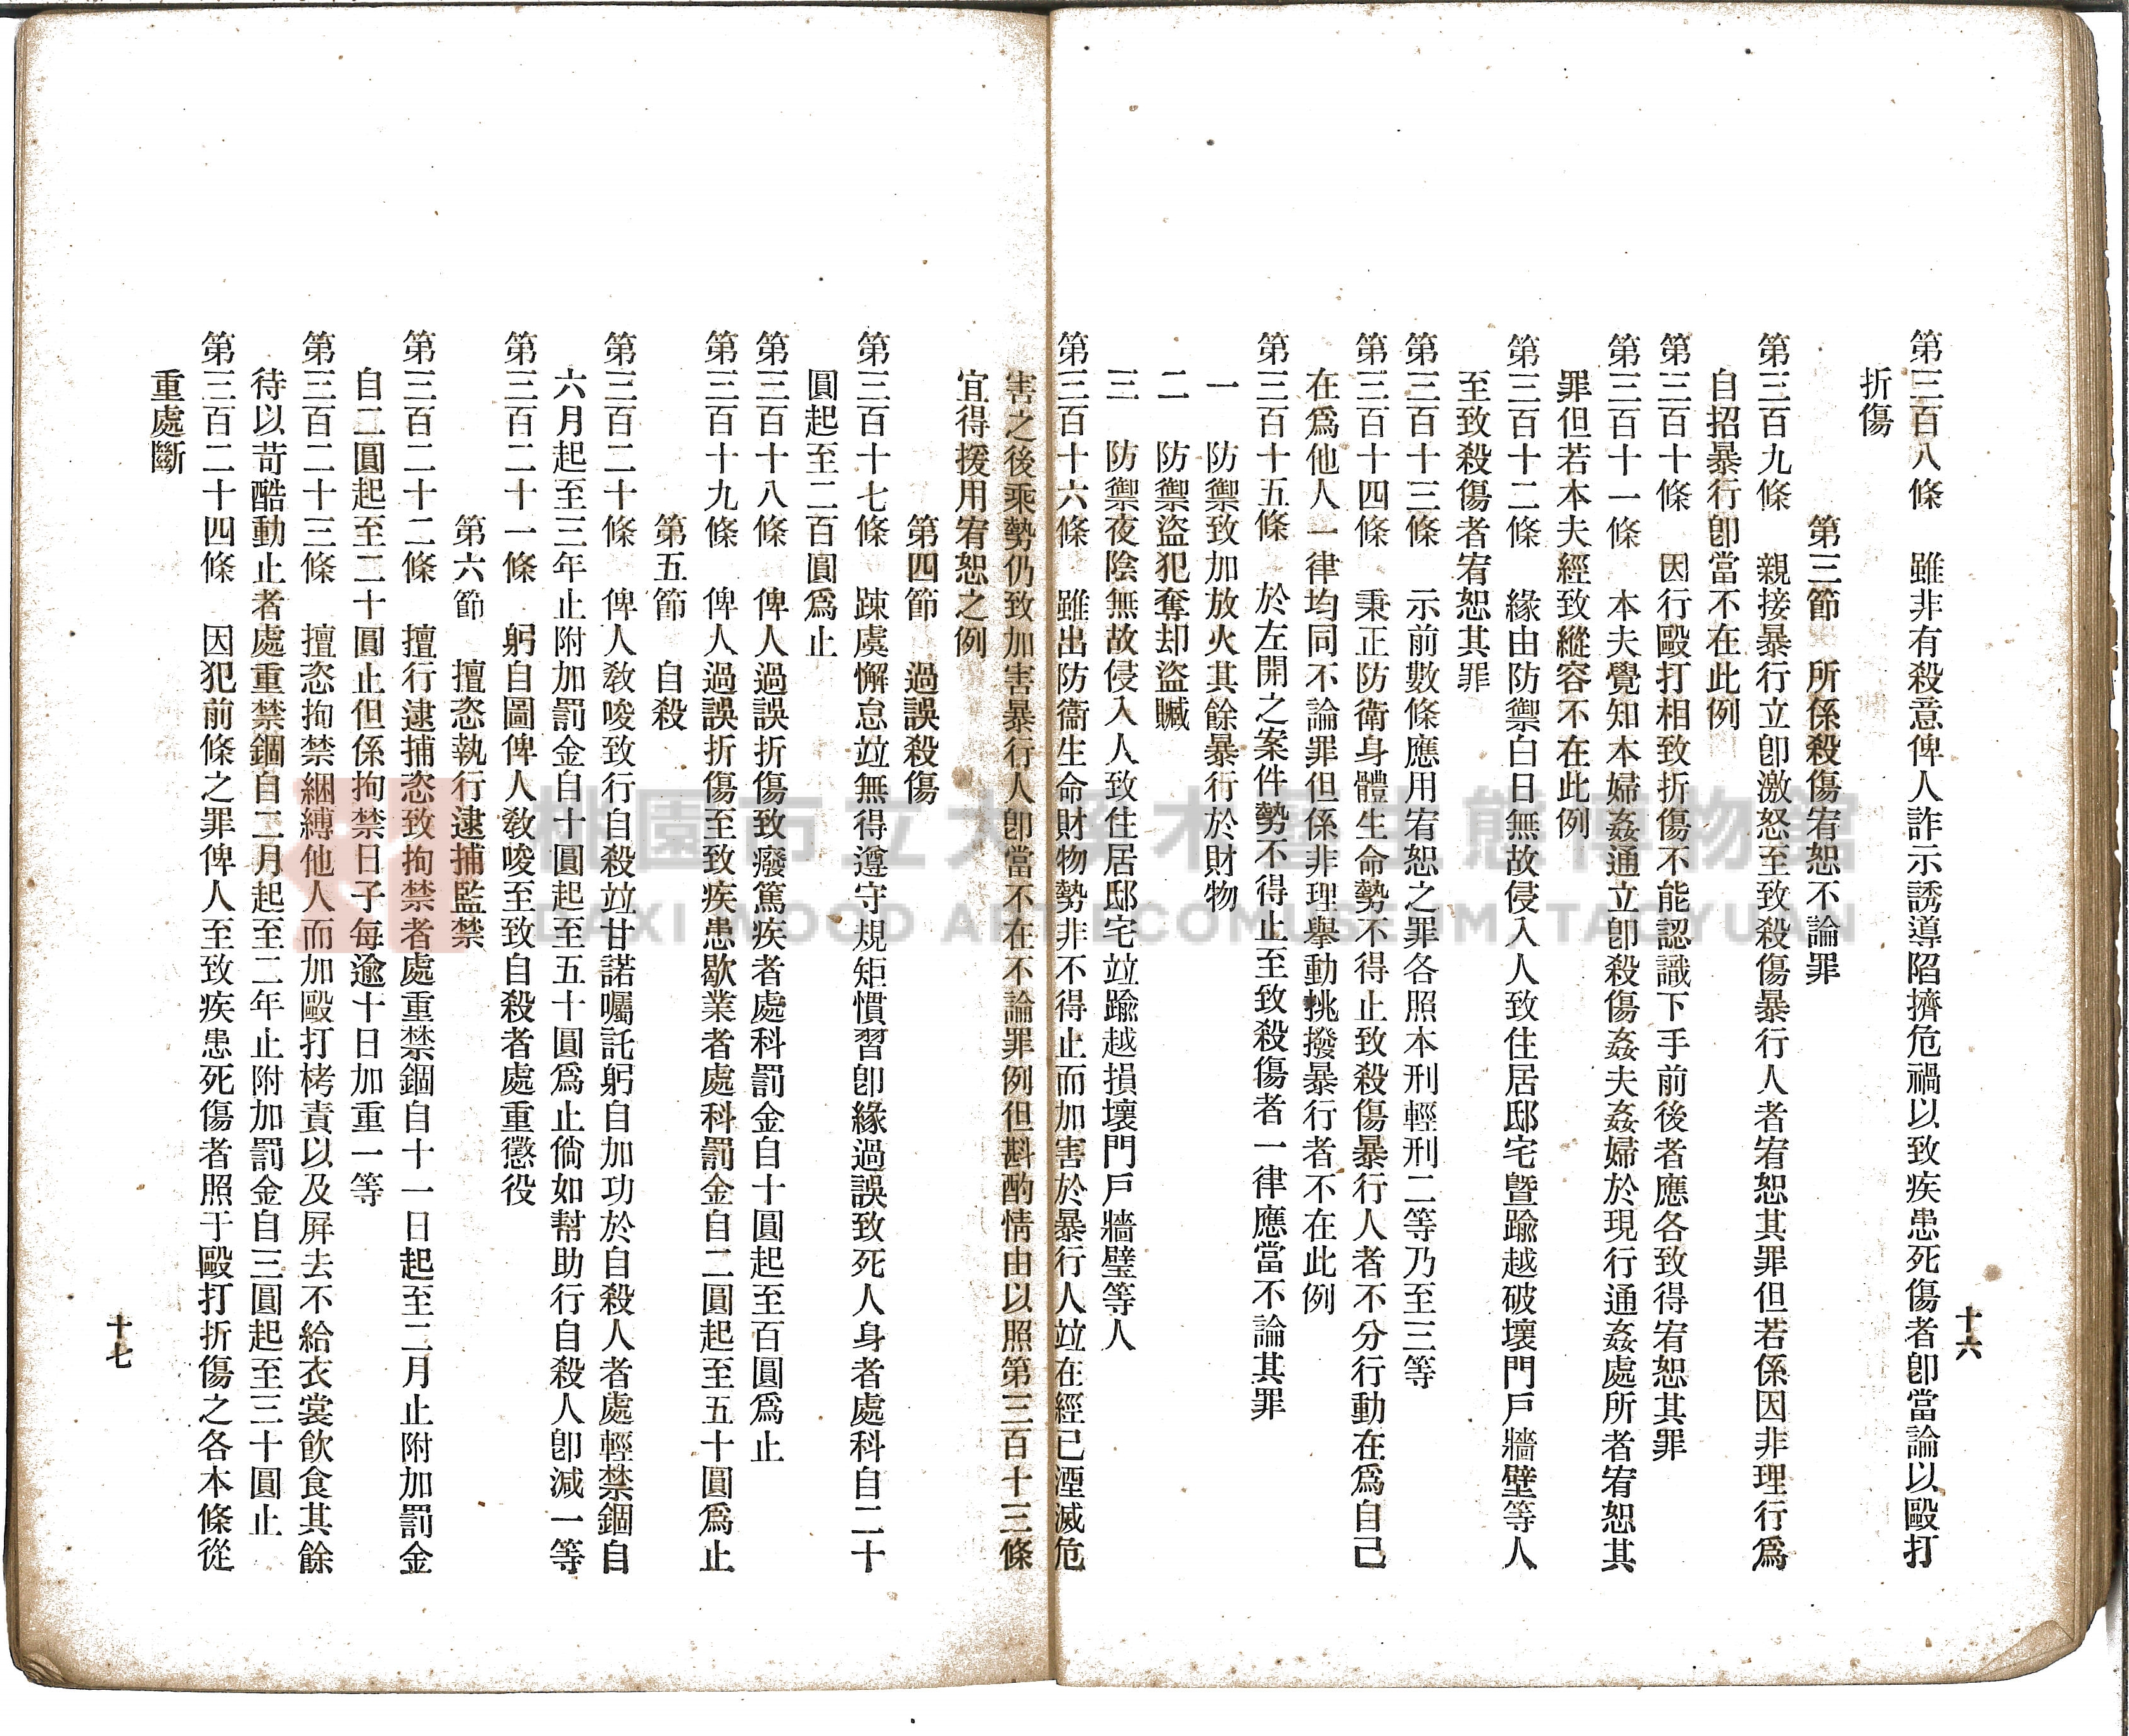 十六
第三百八條　雖非有殺意俾人詐示誘導陷擠危禍以致疾患死傷者卽當論以毆打
折傷
第三節　所係殺傷宥恕不論罪
第三百九條　親接暴行立卽激怒至致殺傷暴行人者宥恕其罪但若係因非理行爲
自招暴行卽當不在此例
第三百十條　因行毆打相致折傷不能認識下手前後者應各致得宥恕其罪
第三百十一條　本夫覺知本婦姦通立卽殺傷姦夫姦婦於現行通姦處所者宥恕其
罪但若本夫經致縱容不在此例
第三百十二條　緣由防禦白日無故侵入人致住居邸宅曁踰越破壞門戶牆壁等人
至致殺傷者宥恕其罪
第三百十三條　示前數條應用宥恕之罪各照本刑輕刑二等乃至三等
第三百十四條　秉正防衛身體生命勢不得止致殺傷暴行人者不分行動在爲自己
在爲他人一律均同不論罪但係非理擧動挑撥暴行者不在此例
第三百十五條　於左開之案件勢不得止至致殺傷者一律應當不論其罪
一　防禦致加放火其餘暴行於財物
二　防禦盜犯奪却盜贓
三　防禦夜陰無故侵入人致住居邸宅竝踰越損壞門戶牆璧等人
第三百十六條　雖出防衞生命財物勢非不得止而加害於暴行人竝在經已湮滅危
害之後乘勢仍致加害暴行人卽當不在不論罪例但斟酌情由以照第三百十三條
宜得援用宥恕之例
第四節　過誤殺傷
第三百十七條　踈虞懈怠竝無得遵守規矩慣習卽緣過誤致死人身者處科自二十
圓起至二百圓爲止
第三百十八條　俾人過誤折傷致癈篤疾者處科罰金自十圓起至百圓爲止
第三百十九條　俾人過誤折傷至致疾患歇業者處科罰金自二圓起至五十圓爲止
第五節　自殺
第三百二十條　俾人敎唆致行自殺竝甘諾囑託躬自加功於自殺人者處輕禁錮自
六月起至三年止附加罰金自十圓起至五十圓爲止倘如幫助行自殺人卽減一等
第三百二十一條　躬自圖俾人敎唆至致自殺者處重懲役
第六節　擅恣執行逮捕監禁
第三百二十二條　擅行逮捕恣致拘禁者處重禁錮自十一日起至二月止附加罰金
自二圓起至二十圓止但係拘禁日子每逾十日加重一等
第三百二十三條　擅恣拘禁綑縛他人而加毆打栲責以及屛去不給衣裳飮食其餘
待以苛酷動止者處重禁錮自二月起至二年止附加罰金自三圓起至三十圓止
第三百二十四條　因犯前條之罪俾人至致疾患死傷者照于毆打折傷之各本條從
重處斷
十七
桃園市立大溪木藝生態博物館
DAXI WOOD ART ECOMUSEUM, TAOYUAN